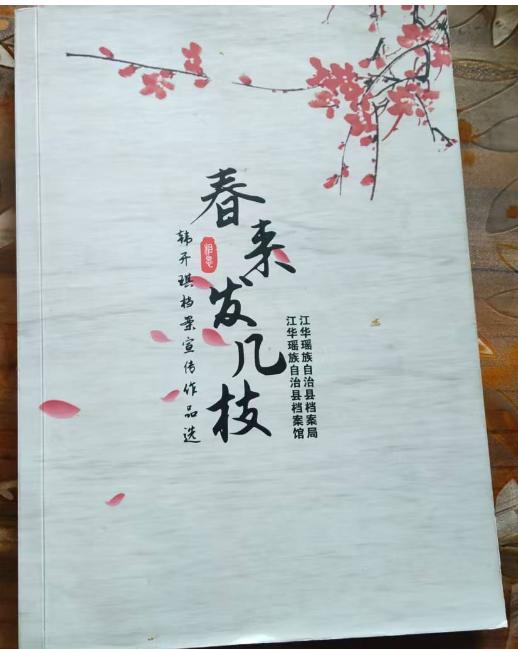 春来发几枝
相思
韩开琪档案宣传作品选
江华瑶族自治县档案局
江华瑶族自治县档案馆